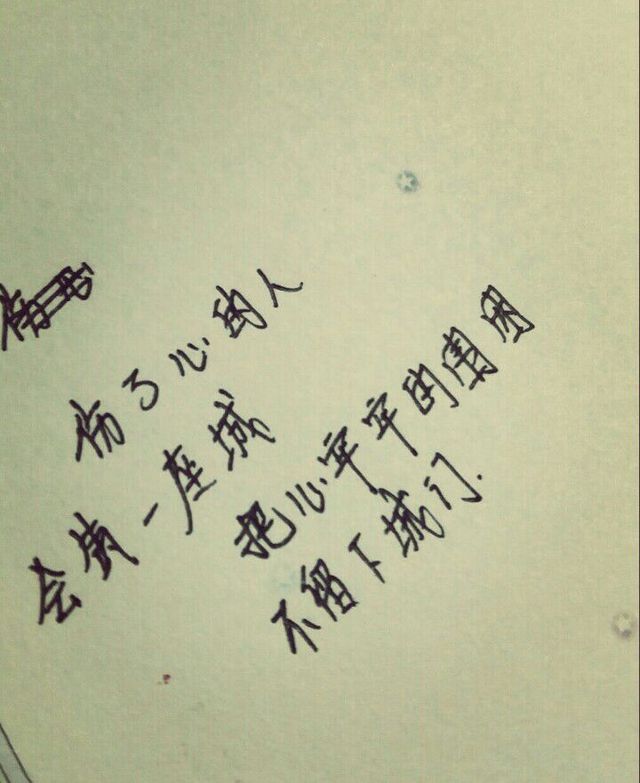 伤了心的人
会筑一座城
把心牢牢的围困
不留下城门.